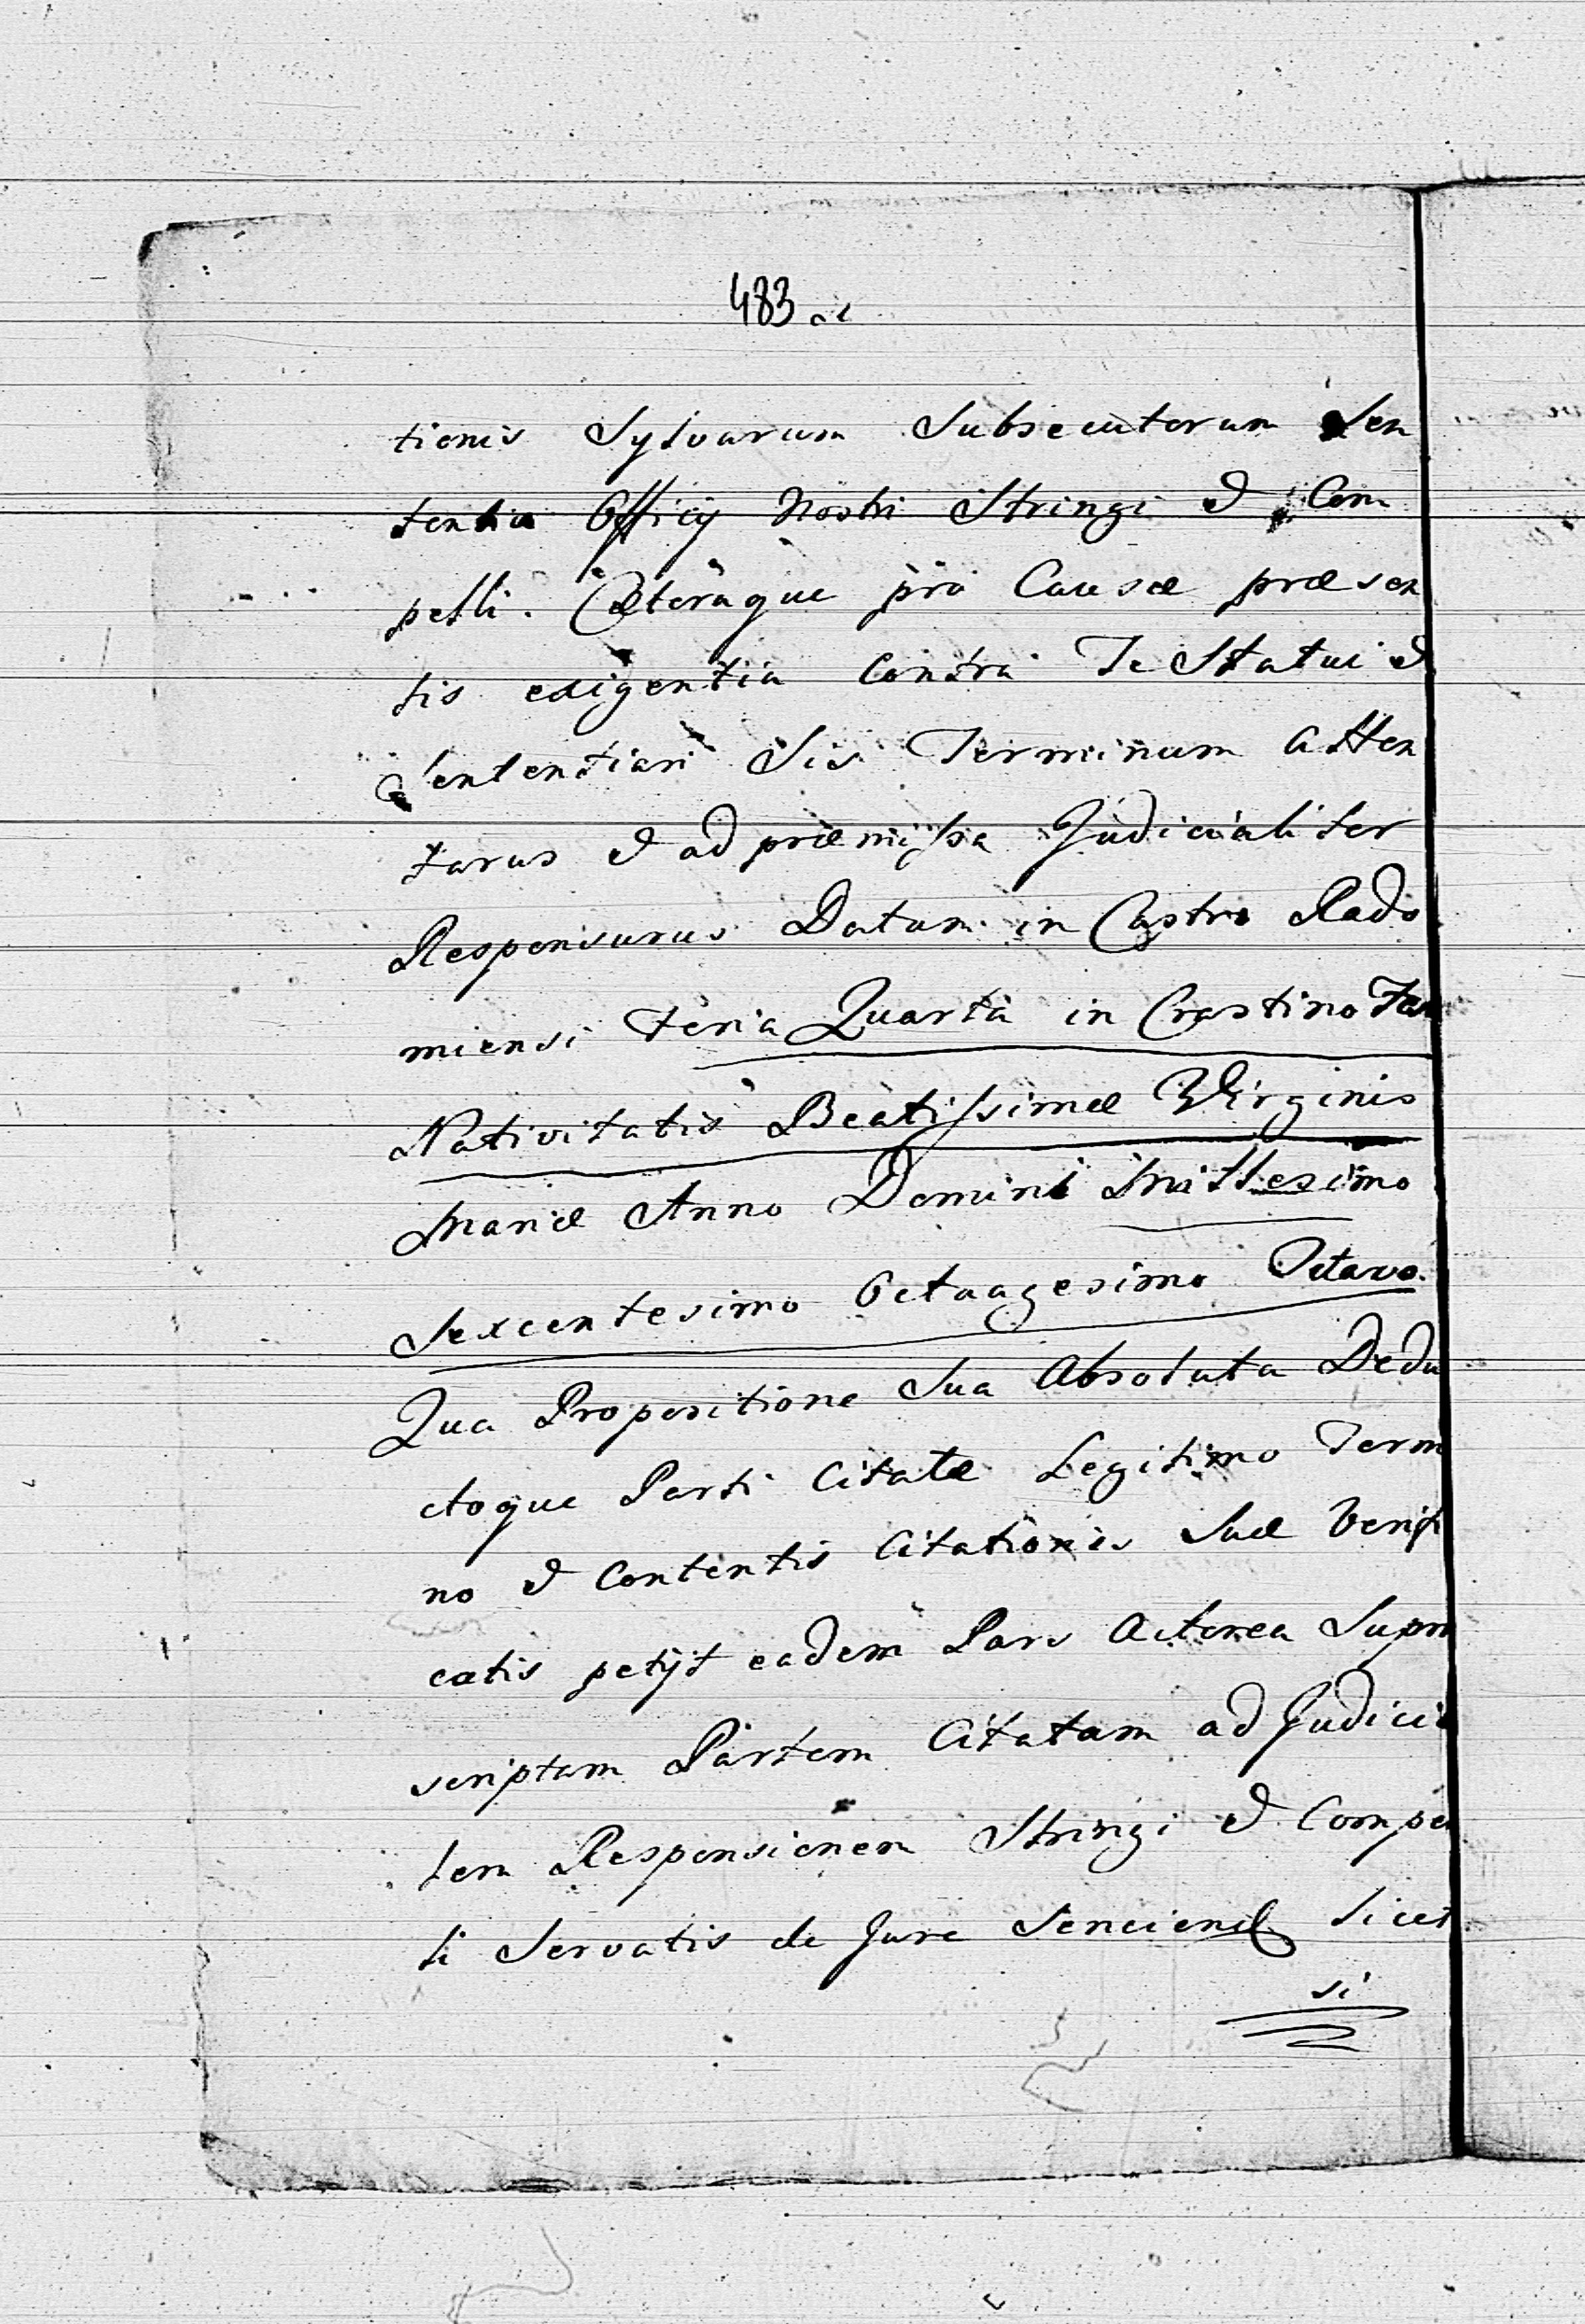 483
tionis Sylvarum Subsecutorum Sen
tentia Officij Nostri Stringi et Com
pelli. Cæteraque pro Causæ præsen
tis exigentia Contra Te Statui et
Sententiari Sis Terminum Atten
tarus et ad præmissa Judicialiter
Responsurus Datum in Castro Rado
miensi Feria Quarta in Crastino Fes
Nativitatis Beatissimæ Virginis
Mariæ Anno Domini Millesimo
Sexcentesimo Octuagesimo Octavo.
Qua Propositione Sua Absoluta Dedu
ctoque Parti Citatæ Legitimo Term
no et Contentis Citationis Suæ Verifi
catis petijt eadem Pars Actorea Supra
scriptam Partem Citatam ad Judicia
lem Responsionem Stringi et Compel
li Servatis de Jure Senciend
si